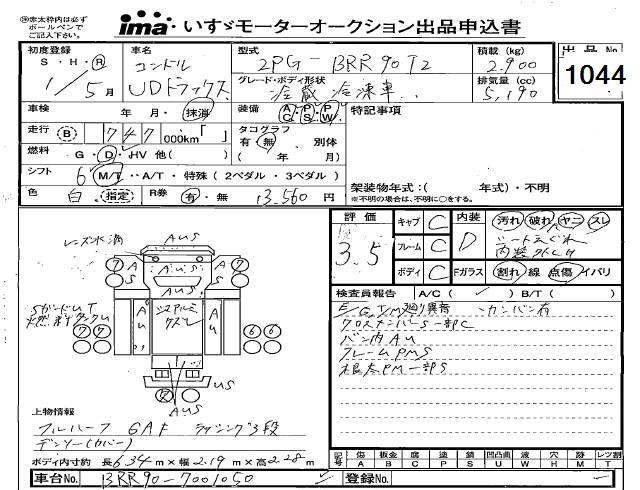 ㊟赤太枠内は必ず
ボールペンで
ご記入下さい。
ima・いすゞモーターオークション出品申込書
初度登録 車名 型式 積載 (kg) 出品No
S・H・Ⓡ コンドル 2PG-BRR90T2 2,900 1044
1/5月 UDトラックス グレード・ボディ形状 排気量 (cc)
冷蔵冷凍車 5,190
車検 年・月・抹消 装備 AC PS PW 特記事項
走行 Ⓑ 747 000km「 」 タコグラフ
有・無 別体
( 年 月)
燃料 G・D・HV 他( )
シフト 6 M/T・A/T・特殊 (2ペダル・3ペダル) 架装物年式:( 年式)・不明
色 白 指定 R券 有・無 13,560円 ※不明の場合は、不明に○をする。
評価 3.5 キャブ C 内装 D 汚れ 破れ ヤニ スレ
フレーム C
ボディ C Fガラス 割れ 線 点傷 イバリ
検査員報告 A/C( ✓ ) B/T( )
E/G,T/M廻り異音 カンバン有
クロスメンバーS一部C
バン内AU
フレームPMS
根太PM一部S
レンズ水滴 AUS
AUS
AUS
⑦ ⑦
AU AU
⑦ ⑦ ⑥ ⑥
AUS
AUS
上物情報
フルハーフ GAF ラッシング3段
デンソー(カバー)
ボディ内寸約 長6.34m×幅2.19m×高2.28m
記号 傷A 板金B 腐C 塗P 錆S 凹凸曲U 波W 穴H 跡M レツ割T
車台No. BRR90-7001050 登録No.